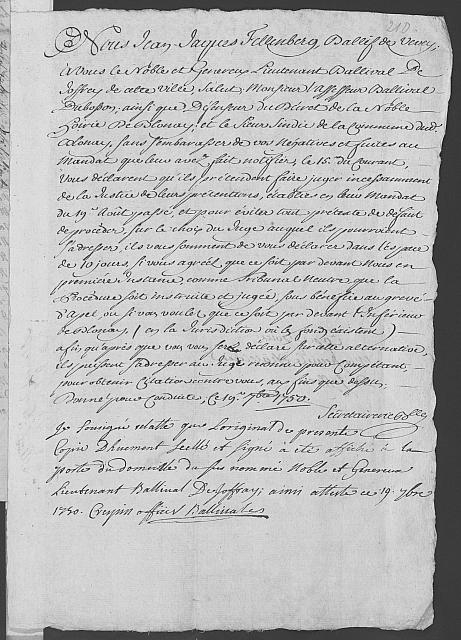 210
Nous Jean Jaques Fellenberg Ballif de Vevey,
à vous le Noble et Genereux Lieutenant Ballival De
Joffrey de cette ville, Salut, Monsieur l'assesseur Ballival
Dubosson, ainsi que Deffenseur du Droit de la Noble
Hoirie De Blonay, et le Sieur Sindic de la Commune dud.
Blonay, sans s'embarasser de vos Negatives et fuites au
Mandat que leur avez fait notifier le 15e. du Courant,
vous declarent qu'ils prétendent faire juger incessamment
de la Justice de leurs prétentions, établies en leur Mandat
du 19e. Août passé, et pour éviter tout prétexte de défaut
de proceder, sur le choix du Juge auquel ils pourroient
s'adresser, ils vous somment de vous declarer dans l'espace
de 10 jours, si vous agréés que ce soit par devant Nous en
première Instance comme Tribunal Neutre que la
Procedure soit instruite et jugée, sous bénéfice au grevé
d'Apel, ou si vous voulez que ce soit par devant l'Inferieure
de Blonay, (en la Jurisdiction où le fond existent)
afin qu'après que vous vous serés declaré sur cette alternative,
ils puissent s'adresser au Juge reconnu pour Competant,
pour obtenir Citation contre vous, aux fins que dessus;
Donné pour conduite, ce 19e. 7bre 1750.
Secretairerie de Vevey
Je soussigné atteste que l'original de presente
Copie Dhuement Scellé et signé a eté affiché a la
porte du domicille du sus nommé Noble et Genereux
Lieutenant Ballival De Joffrey; ainsi attesté ce 19. 7bre
1750. Crespin officier Ballivales